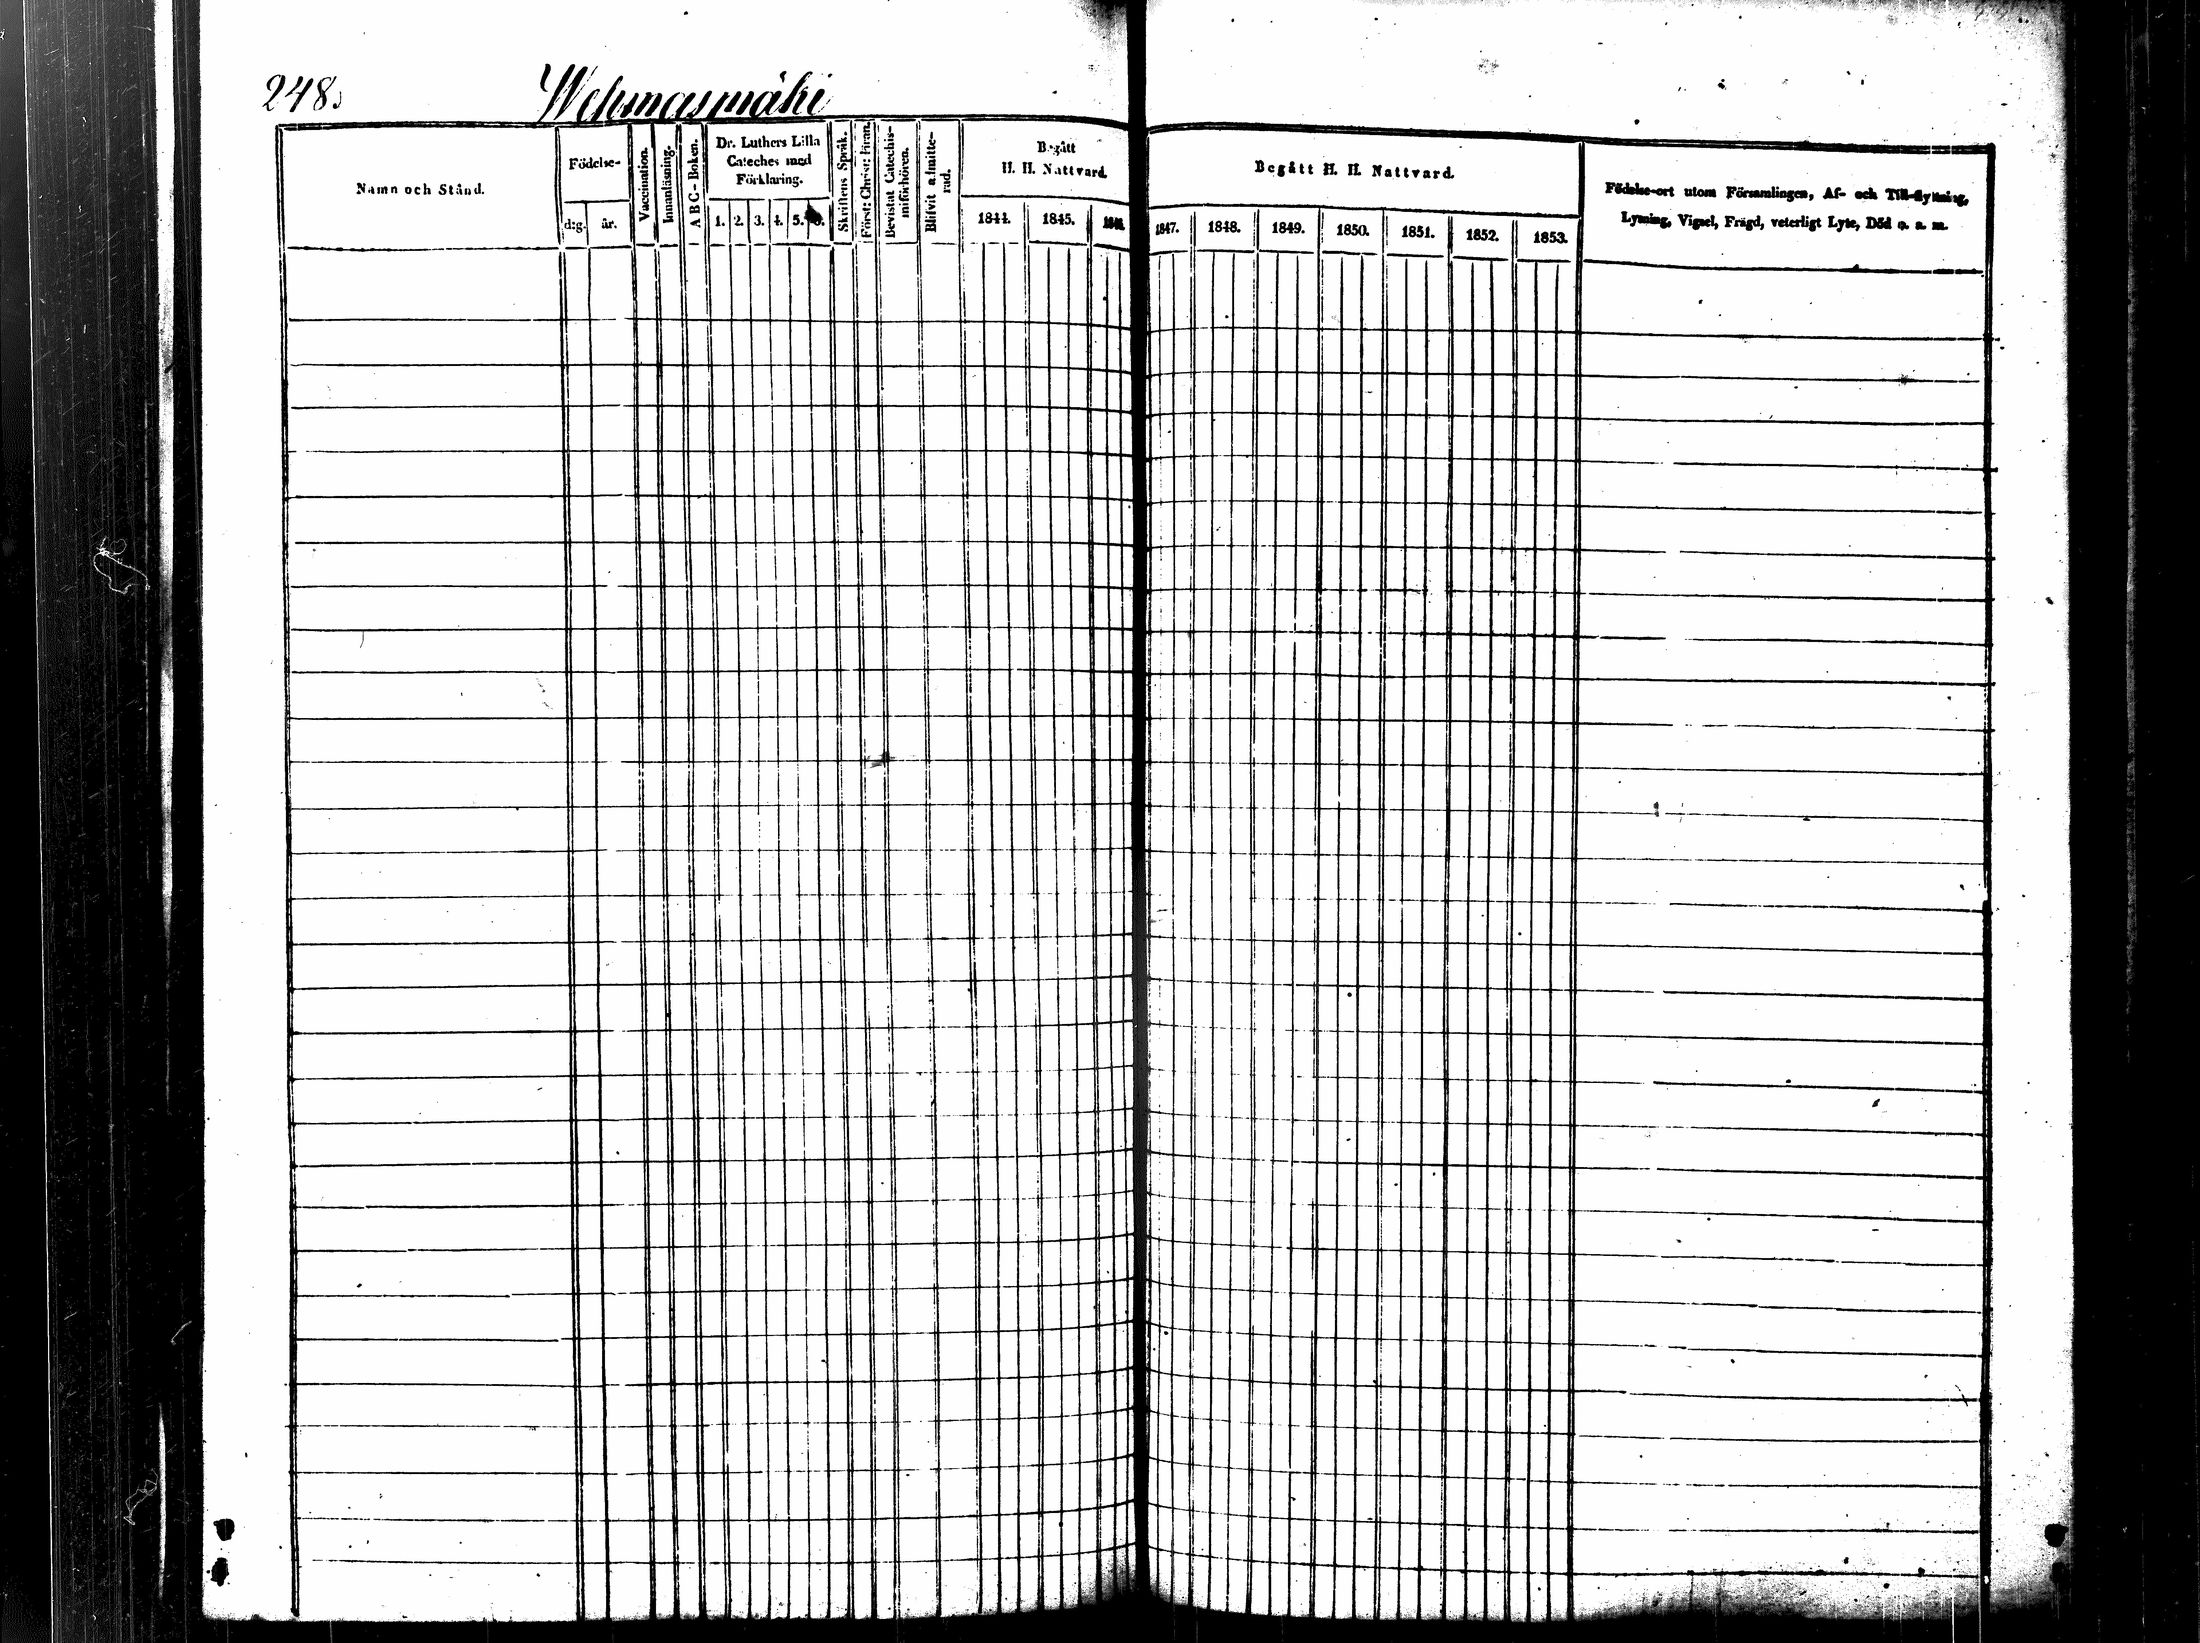 248.
Wehmasmäki
Namn och Stånd.
Födelse-
d:g.
år.
Vaccination.
Innanläsning.
A B C - Boken.
Dr. Luthers Lilla
Cateches med
Förklaring.
1. 2. 3. 4. 5. 6.
Skriftens Språk.
Först: Christ: Finn.
Bevistat Catechis-
miförhören.
Blifvit admitte-
rad.
Begått
H. H. Nattvard.
1844. 1845. 1846.
Begått H. H. Nattvard.
1847. 1848. 1849. 1850. 1851. 1852. 1853.
Födelse-ort utom Församlingen, Af- och Till-flyttning,
Lysning, Vigsel, Frägd, veterligt Lyte, Död o. s. m.